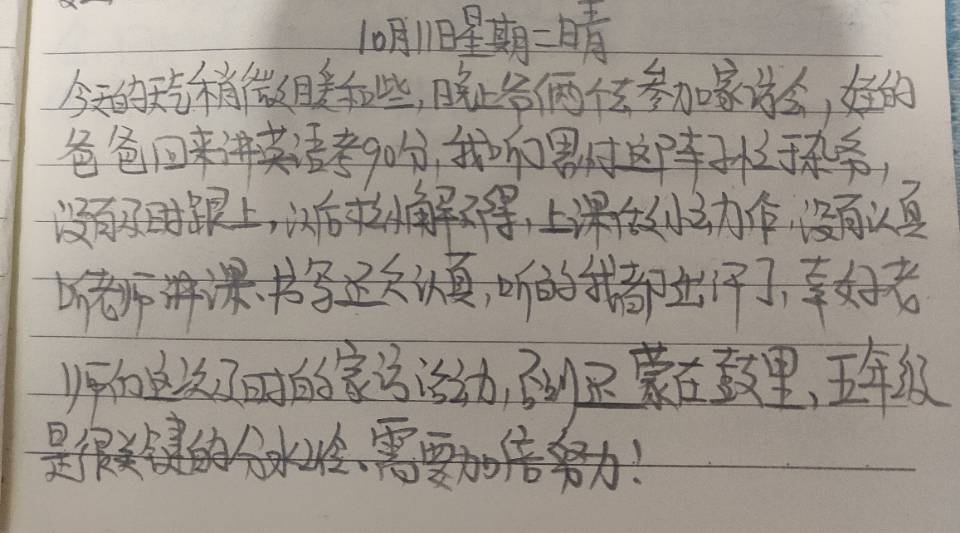 10月11日星期二晴
今天的天气稍微暖和些,晚上爸俩个去参加家访会,娃的
爸爸回来讲英语考90分,我听了累,这阵子忙于杂务,
没有及时跟上,以后松懈不得,上课做小动作,没有认真
听老师讲课、书写还欠认真,听的我都出汗了,幸好老
师们这次及时的家访活动,否则还蒙在鼓里、五年级
是很关键的分水岭、需要加倍努力!